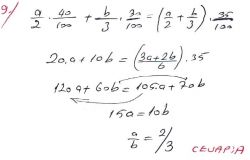 9./ a/2 · 40/100 + b/3 · 30/100 = (a/2 + b/3) · 35/100
20a + 10b = (3a+2b/6) · 35
120a + 60b = 105a + 70b
15a = 10b
a/b = 2/3
CEVAP: A